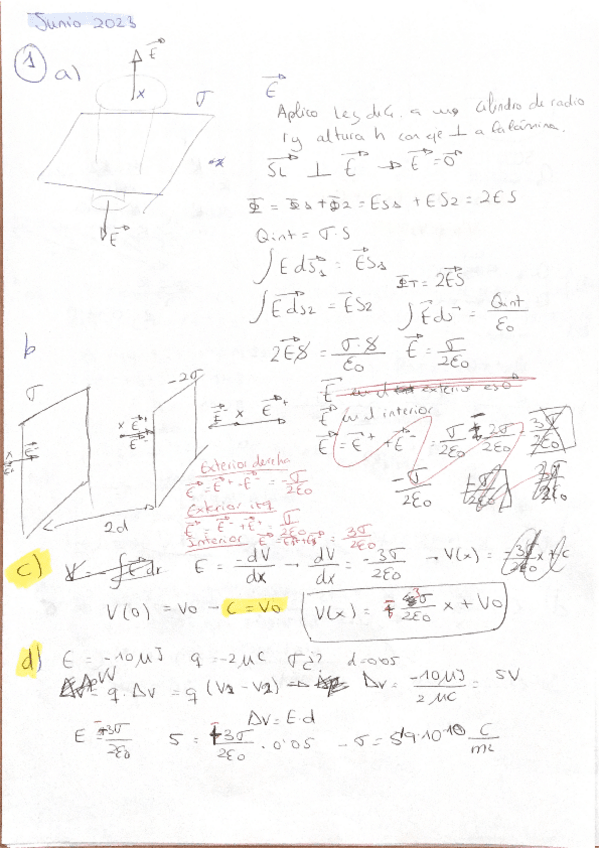 Junio 2023
1 a)
E
x
σ
E
E
Aplico Ley de G. a un cilindro de radio
r y altura h con eje ⊥ a la lámina.
SL ⊥ E → E = 0
Φ = Φ1 + Φ2 = ES1 + ES2 = 2ES
Qint = σ·S
∫ E dS1 = ES1
ΦT = 2ES
∫ E dS2 = ES2
∫ E dS = Qint/ε0
2ES = σ·S/ε0
E = σ/2ε0
b
σ
-2σ
x E+
E-
x E+
E-
2d
E en el exterior es 0
E en el interior
E = E+ + E- = σ/2ε0 + 2σ/2ε0 3σ/2ε0
-σ/2ε0
Exterior derecha
E = E+ - E- = -σ/2ε0
Exterior izq
E = E- + E+ = σ/2ε0
Interior E = E+ + E- = 3σ/2ε0
c) E = -dV/dx → dV/dx = -3σ/2ε0 → V(x) = -3σ/2ε0 x + C
V(0) = V0 → C = V0
V(x) = - 3σ/2ε0 x + V0
d) E = -10 μJ q = -2 μC σ ¿? d = 0'05
ΔW = q·ΔV = q (V1 - V2) → ΔV = -10 μJ/2 μC = 5V
ΔV = E·d
E = -3σ/2ε0
5 = -3σ/2ε0 · 0'05 → σ = 5'9·10^-10 C/m2